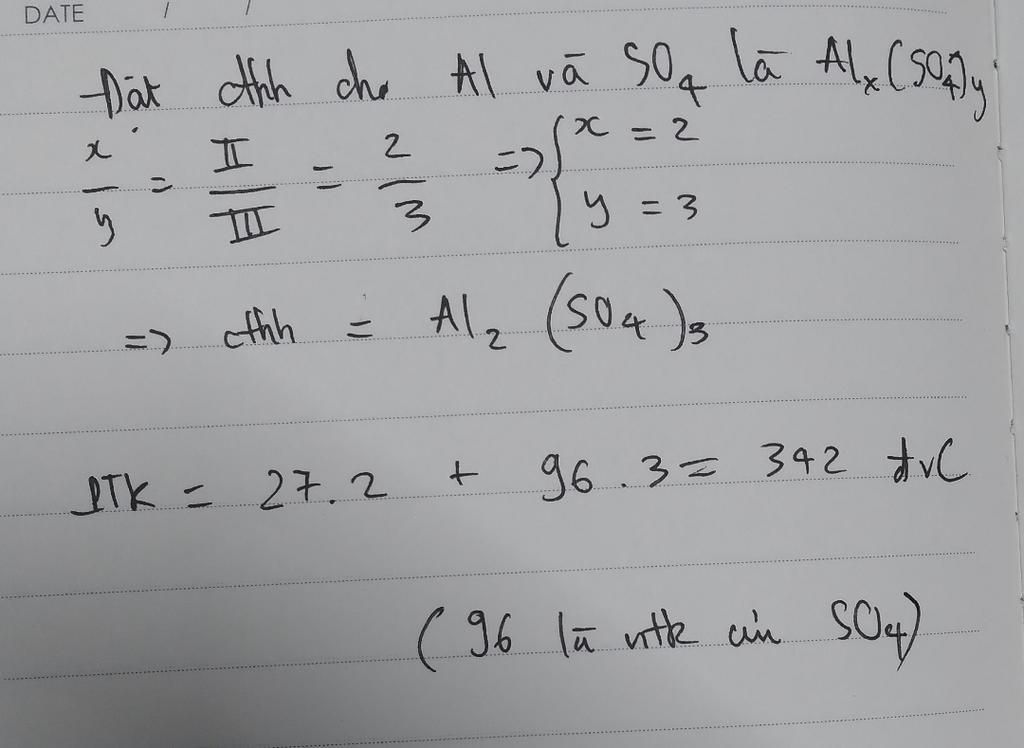 DATE / /
Đặt cthh cho Al và SO₄ là Alₓ(SO₄)y
x/y = II/III = 2/3 => { x = 2
y = 3
=> cthh = Al₂ (SO₄)₃
PTK = 27.2 + 96.3 = 342 đvC
(96 là ntk của SO₄)